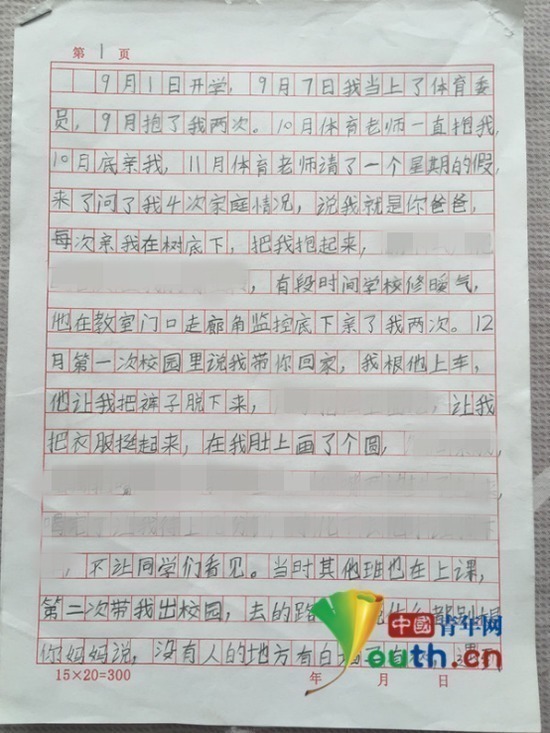 第 1 页
9月1日开学，9月7日我当上了体育委
员，9月抱了我两次。10月体育老师一直抱我，
10月底亲我，11月体育老师请了一个星期的假，
来了问了我4次家庭情况，说我就是你爸爸，
每次亲我在树底下，把我抱起来，
，有段时间学校修暖气，
他在教室门口走廊角监控底下亲了我两次。12
月第一次校园里说我带你回家，我根他上车，
他让我把裤子脱下来，，让我
把衣服挺起来，在我肚上画了个圆，
，不让同学们看见。当时其他班也在上课，
第二次带我出校园，去的路
你妈妈说，没有人的地方有白
中國青年网
youth.cn
15×20=300 年 月 日